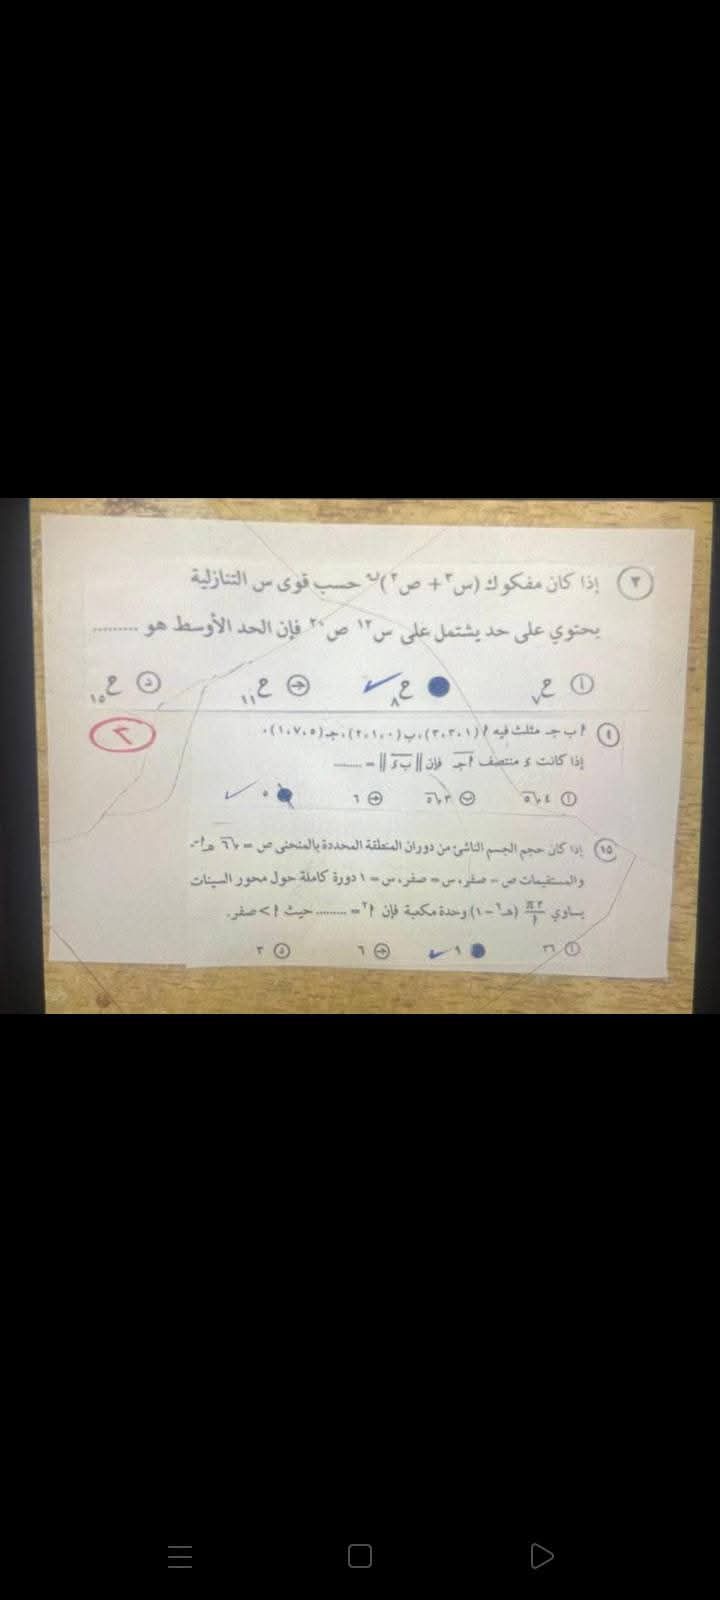 ٣ إذا كان مفكوك (س٣ + ص٢)ن حسب قوى س التنازلية
يحتوي على حد يشتمل على س١٢ ص٢٠ فإن الحد الأوسط هو .........
أ ح٧ ح٨ ج ح١١ د ح١٥
٣
٤ أ ب جـ مثلث فيه أ(٣،٣،١)، ب(٢،١،٠)، جـ(١،٧،٥)،
إذا كانت ء منتصف أجـ فإن ||بء|| = .........
أ ٤√٥ ب ٣√٥ ج ٦ ٥
١٥ إذا كان حجم الجسم الناشئ من دوران المنطقة المحددة بالمنحنى ص = √٦
والمستقيمات ص = صفر، س = صفر، س = ١ دورة كاملة حول محور السينات
يساوي ٣π/أ (هـ٦ - ١) وحدة مكعبة فإن أ٢ = ......... حيث أ > صفر.
أ ٣٦ ٩ ج ٦ د ٣